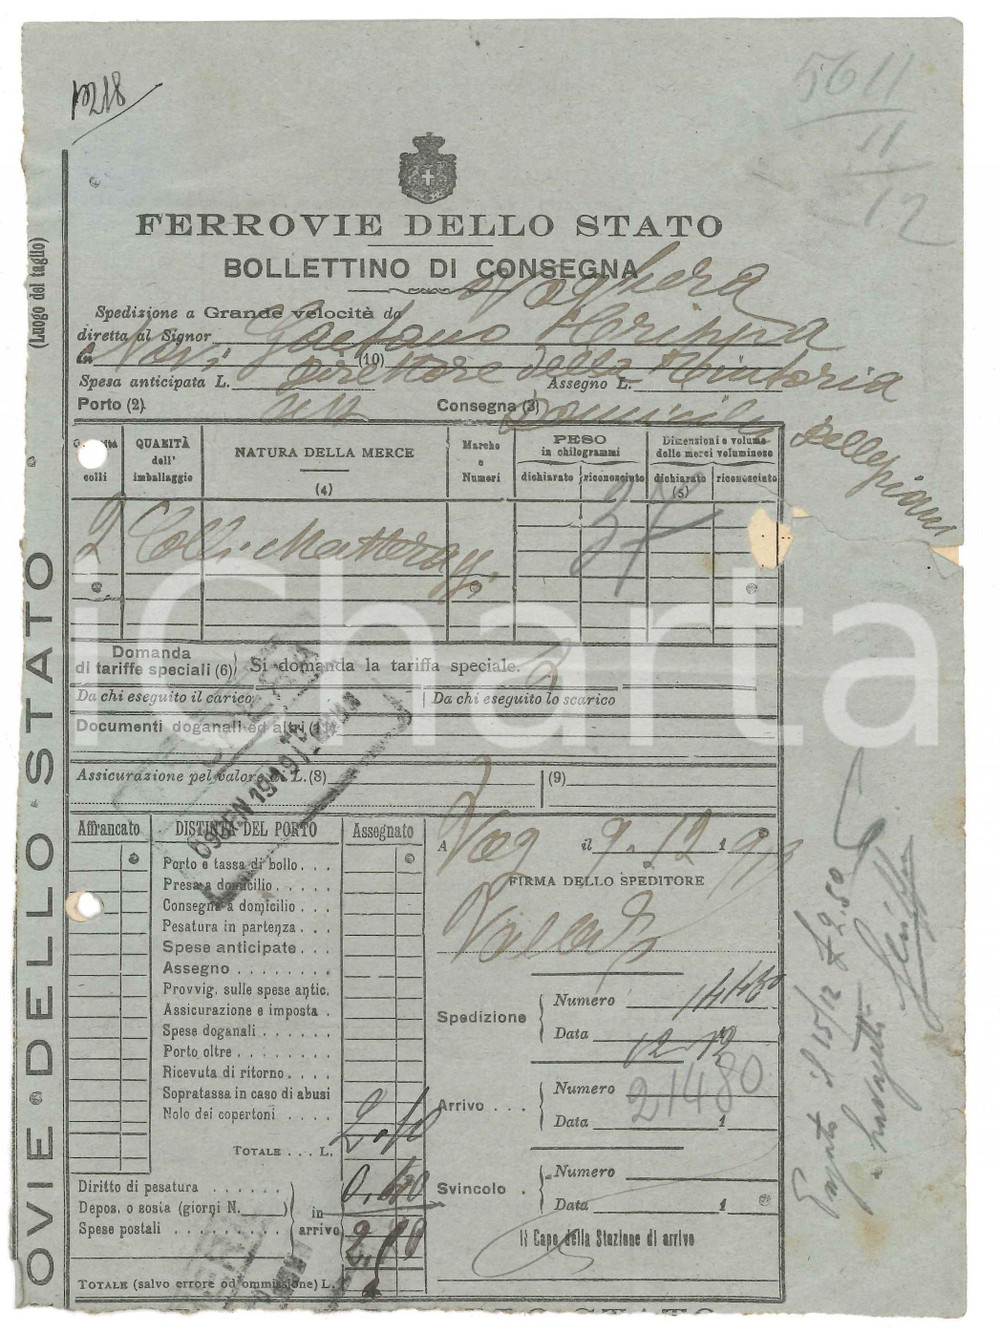 1218
5611
11
12
FERROVIE DELLO STATO
BOLLETTINO DI CONSEGNA
(Luogo del taglio)
Spedizione a Grande velocità da Voghera
diretta al Signor Gaetano
in Novi (10) Direttore della Tintoria
Spesa anticipata L. Assegno L.
Porto (2) Consegna (3) Domicilio Dellepiane
colli
QUALITÀ dell' imballaggio
NATURA DELLA MERCE (4)
Marche e Numeri
PESO in chilogrammi
dichiarato riconosciuto
Dimensioni e volume delle merci voluminose
dichiarato (5) riconosciuto
2 Colli 37
Domanda di tariffe speciali (6) Si domanda la tariffa speciale. 2
Da chi eseguito il carico Da chi eseguito lo scarico
Documenti doganali ed altri
iCharta
Assicurazione pel valore di L. (8) (9)
09 GEN 1919
Affrancato DISTINTA DEL PORTO Assegnato
Porto e tassa di bollo . . .
Presa a domicilio . . . . .
Consegna a domicilio . . .
Pesatura in partenza . . .
Spese anticipate . . .
Assegno . . . . . . . .
Provvig. sulle spese antic.
Assicurazione e imposta .
Spese doganali . . . . .
Porto oltre . . . . . . .
Ricevuta di ritorno . . . .
Sopratassa in caso di abusi
Nolo dei copertoni . . . .
TOTALE . . . L. 2.10
Diritto di pesatura . . . . . .
Depos. o sosta (giorni N. )
Spese postali . . . . . . . .
in arrivo
TOTALE (salvo errore od ommissione) L.
A Vog il 9.12 1
FIRMA DELLO SPEDITORE
Spedizione Numero
Data 12-12
Arrivo . . . Numero 21480
Data 1
Svincolo . Numero
Data 1
Il Capo della Stazione di arrivo
Pagato il 15/12 £ 2.50
OVIE DELLO STATO
STATO